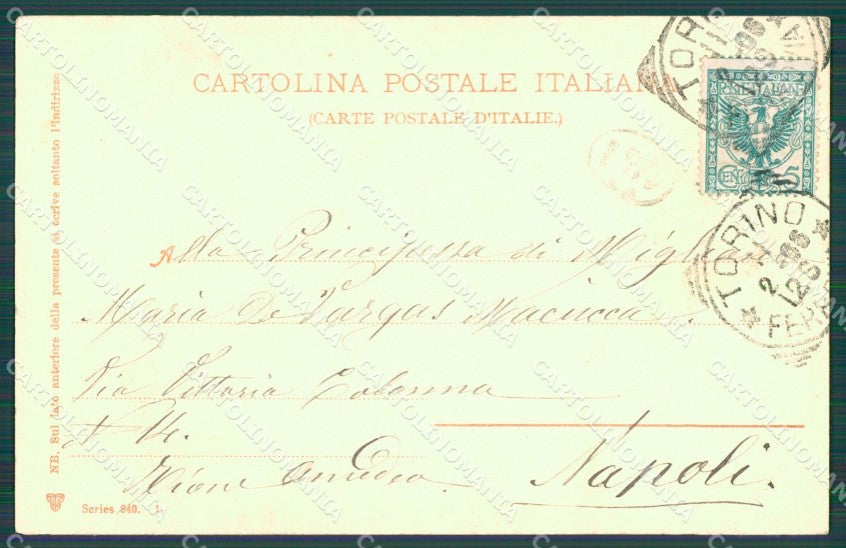 CARTOLINA POSTALE ITALIANA
(CARTE POSTALE D'ITALIE.)
TORINO
TORINO
FERR
POSTE ITALIANE
CEN 5
Alla Principessa di Migliano
Maria De Vargas Macucca.
Via Vittoria Colonna
Rione Amedeo. Napoli.
NB. Sul lato anteriore della presente si scrive soltanto l'indirizzo
Series 840. 1.
CARTOLINOMANIA